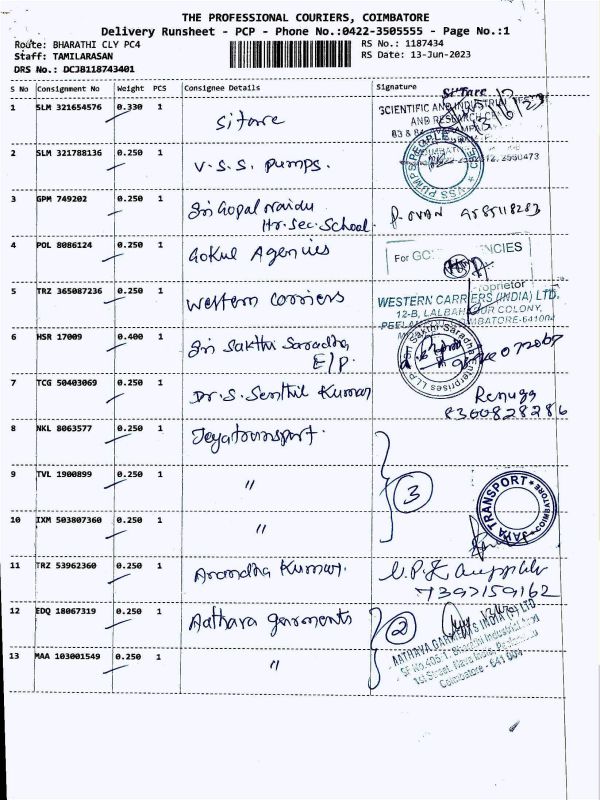 THE PROFESSIONAL COURIERS, COIMBATORE
Delivery Runsheet - PCP - Phone No.:0422-3505555 - Page No.:1
Route: BHARATHI CLY PC4 RS No.: 1187434
Staff: TAMILARASAN RS Date: 13-Jun-2023
DRS No.: DCJB118743401
S No Consignment No Weight PCS Consignee Details Signature
1 SLM 321654576 0.330 1 Sitare
Sitare
SCIENTIFIC AND INDUSTRIAL
AND RESEARCH
13/6/23
2 SLM 321788136 0.250 1 V.S.S. Pumps.
VSS PUMPS PEOPLE CBE
3 GPM 749202 0.250 1 Sri Gopal Naidu
Hr. Sec. School.
4 POL 8086124 0.250 1 Gokul Agencies
For
Proprietor
5 TRZ 365087236 0.250 1 Western Carriers
WESTERN CARRIERS (INDIA) LTD.
12-B, LALBAHADUR COLONY,
COIMBATORE-641004
6 HSR 17009 0.400 1 Sri Sakthi Saradha
E/P.
Sri Sakthi Saradha Enterprises LLP
7 TCG 50403069 0.250 1 Dr. S. Senthil Kumar
Renuga
8300828286
8 NKL 8063577 0.250 1 Jeyatransport.
9 TVL 1900899 0.250 1 "
3
JAYA TRANSPORT COIMBATORE
10 IXM 503807360 0.250 1 "
11 TRZ 53962360 0.250 1 Kumar.
7397159162
12 EDQ 18067319 0.250 1 Aathava garments
2
AATHAVA GARMENTS INDIA (P) LTD
13 MAA 103001549 0.250 1 "
Coimbatore - 641 004